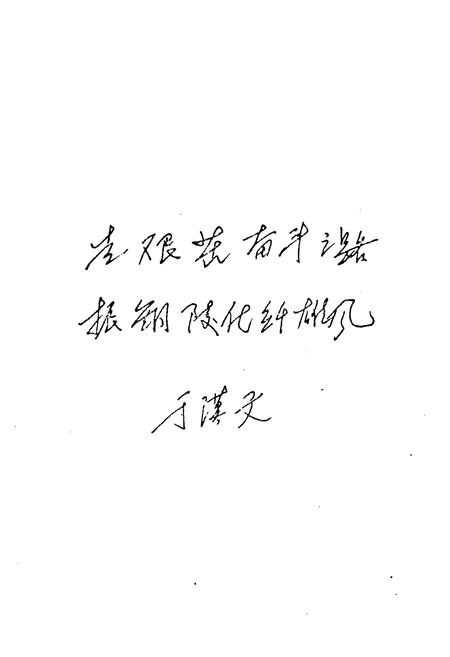 走艰苦奋斗之路
振铜陵化纤雄风
于汉文